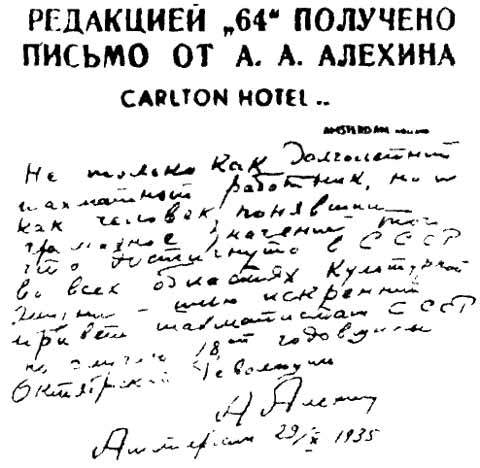 РЕДАКЦИЕЙ „64“ ПОЛУЧЕНО
ПИСЬМО ОТ А. А. АЛЕХИНА
CARLTON HOTEL ..
AMSTERDAM
Не только как долголетний
шахматный работник, но и
как человек, понявший
громадное значение того,
что достигнуто в СССР
во всех областях культурной
жизни – шлю искренний
привет шахматистам СССР
по случаю 18ой годовщины
Октябрьской Революции
А Алехин
Амстердам 29/X 1935